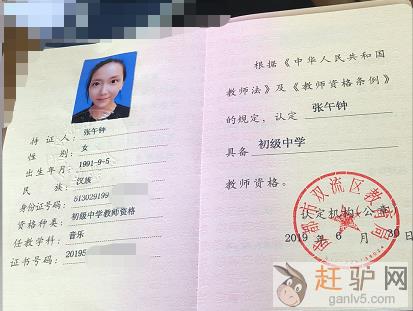 持证人: 张午钟
性别: 女
出生年月: 1991-9-5
民族: 汉族
身份证号码: 513029199
资格种类: 初级中学教师资格
任教学科: 音乐
证书号码: 20195
根据《中华人民共和国
教师法》及《教师资格条例》
的规定，认定 张午钟
具备 初级中学
教师资格。
认定机构(公章)
2019 年 6 月 30 日
成都市双流区教育局
赶驴网
ganlv5.com